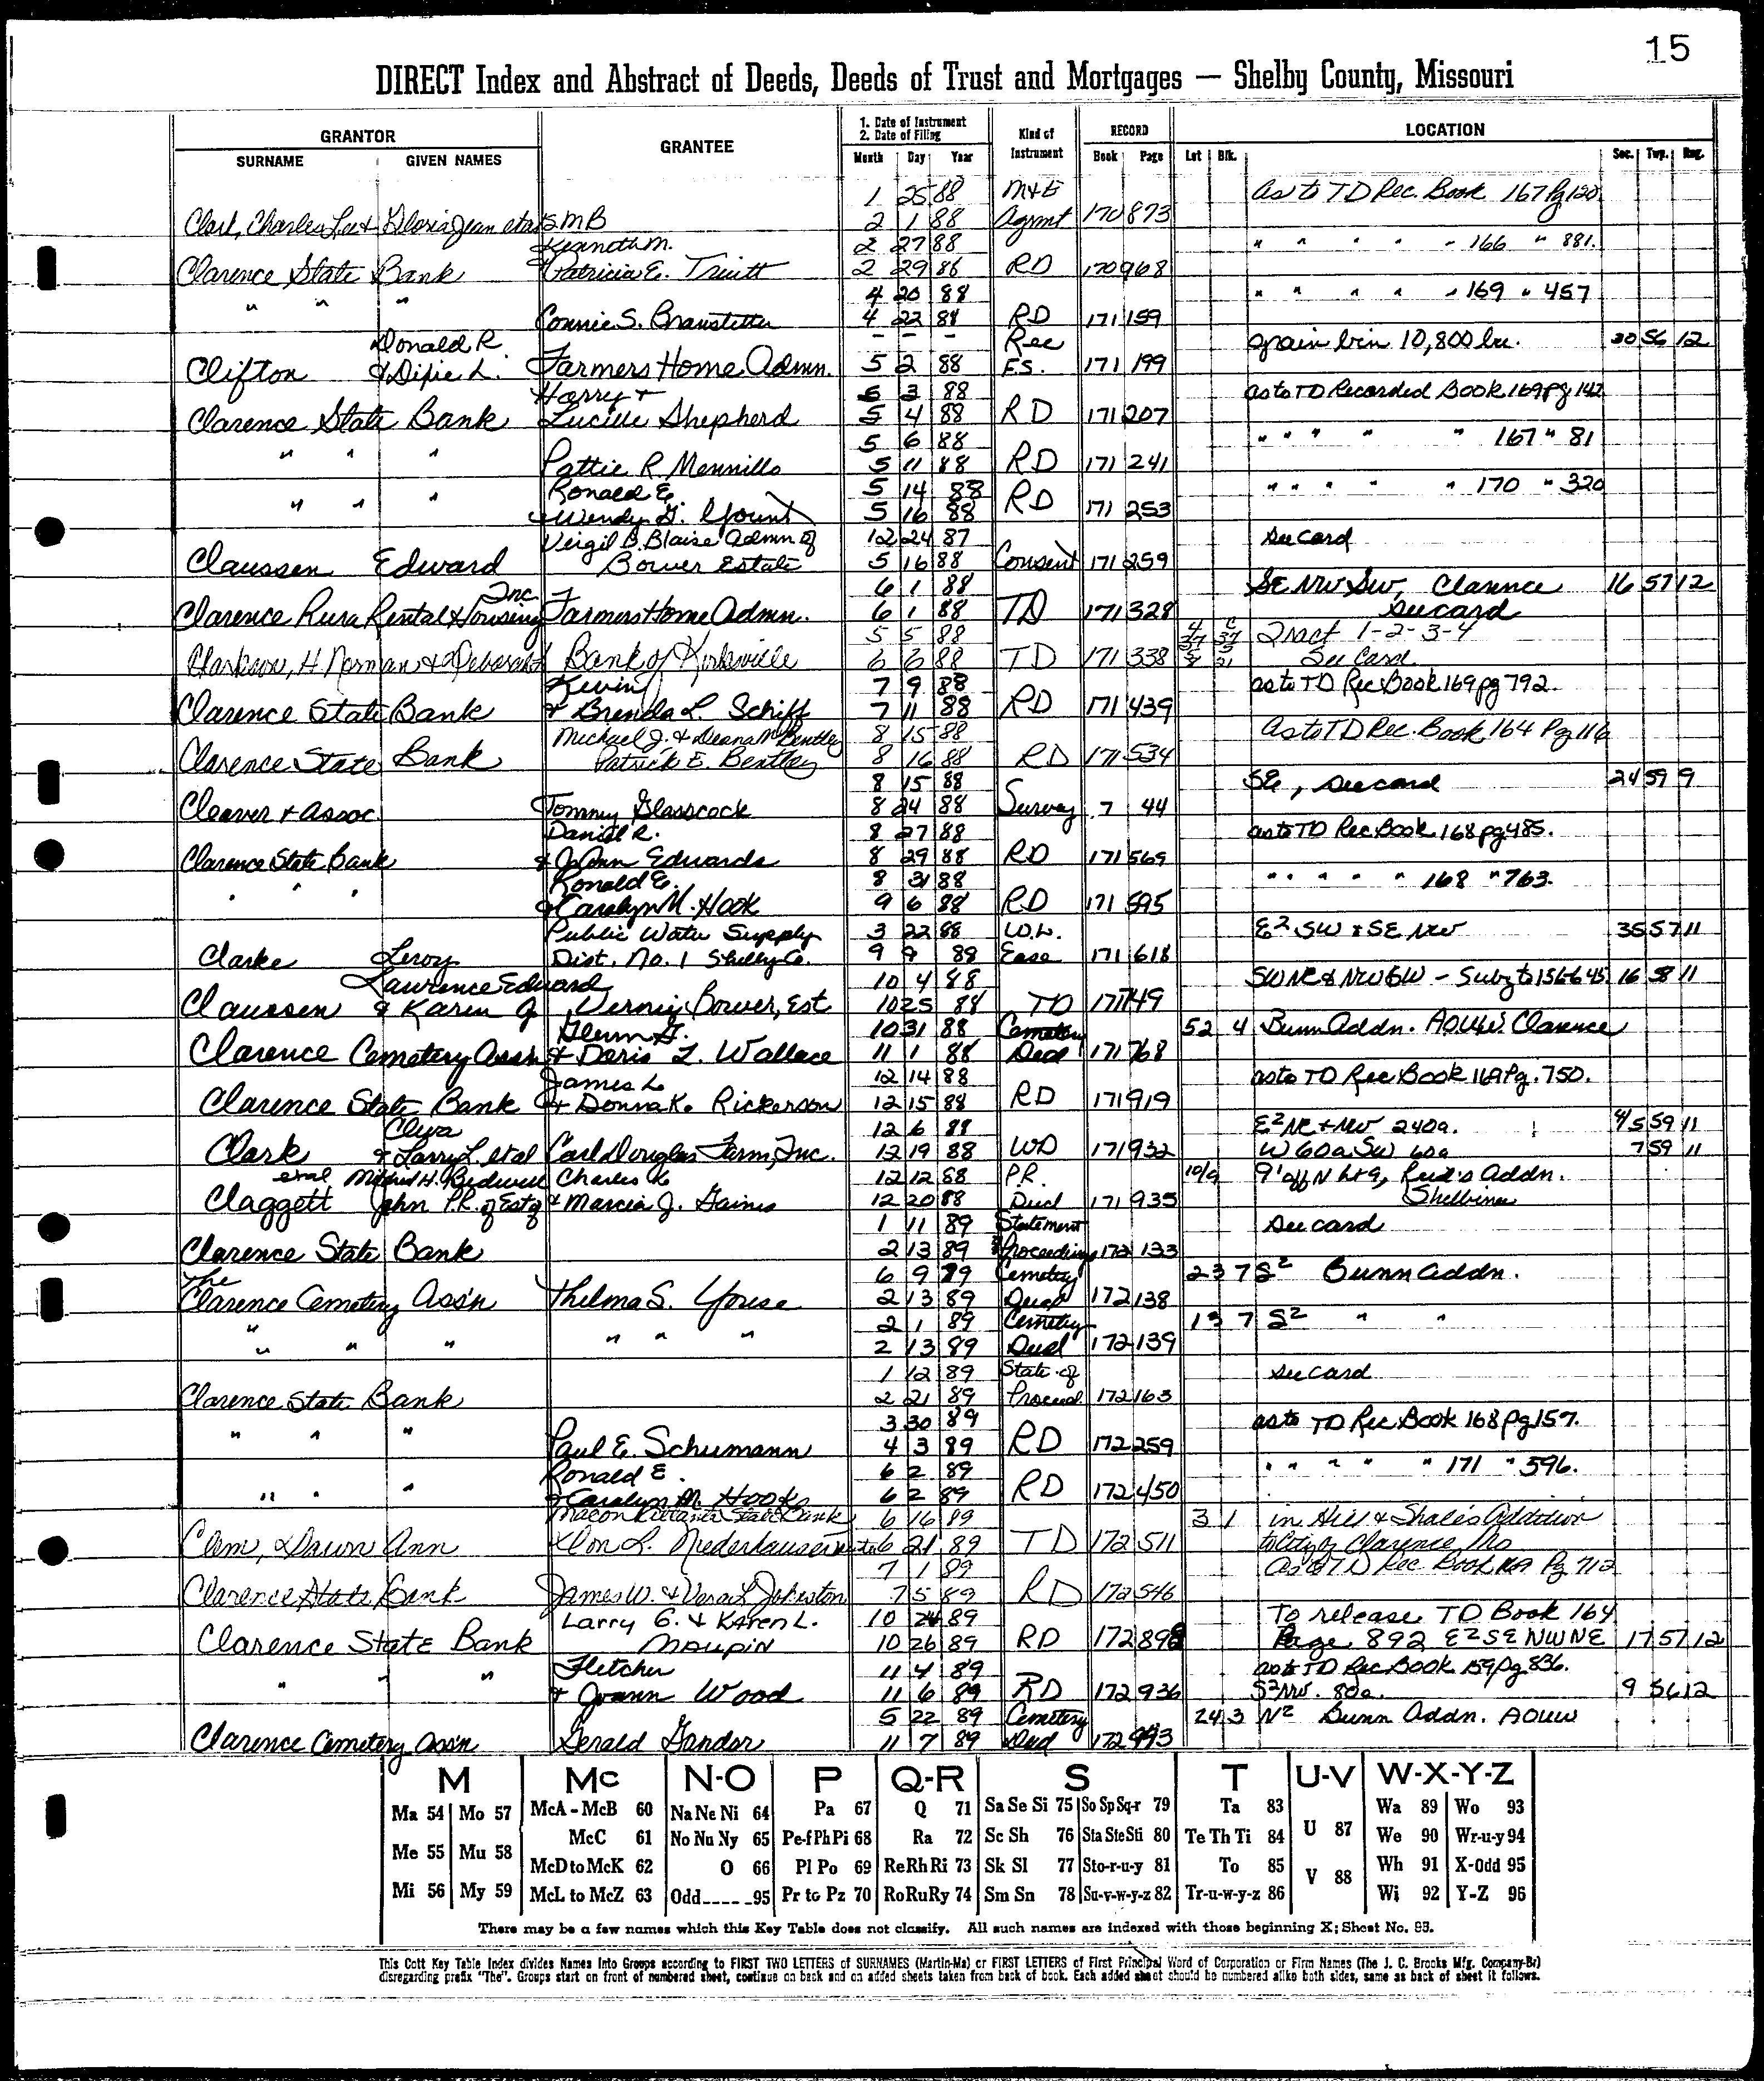 15
DIRECT Index and Abstract of Deeds, Deeds of Trust and Mortgages — Shelby County, Missouri
GRANTOR GRANTEE 1. Date of Instrument 2. Date of Filing Kind of Instrument RECORD LOCATION
SURNAME GIVEN NAMES Month Day Year Book Page Lot Blk. Sec. Twp. Rng.
1 25 88 M&E as to TD Rec. Book 167 Pg 120.
Clark, Charles Lee & Gloria Jean etal SMB 2 1 88 Agmt 170 873
Kenneth M. 2 27 88 " " " " " 166 " 881.
Clarence State Bank & Patricia E. Truitt 2 29 88 RD 170 968
" " " 4 20 88 " " " " " 169 " 457
Connie S. Branstetter 4 22 88 RD 171 159
Donald R. - - - Rec grain bin 10,800 bu. 30 56 12
Clifton & Dixie L. Farmers Home Admn. 5 2 88 F.S. 171 199
Harry & 5 3 88 as to TD Recorded Book 169 pg 142
Clarence State Bank Lucille Shepherd 5 4 88 RD 171 207
" " " 5 6 88 " " " " " 167 " 81
Pattie R. Mennillo 5 11 88 RD 171 241
Ronald E. 5 14 88 " " " " " 170 " 320
" " " & Wendy G. Yount 5 16 88 RD 171 253
Virgil B. Blaise Admn of 12 24 87 see card
Claussen Edward Bower Estate 5 16 88 Consent 171 259
Inc 6 1 88 SE NW SW, Clarence 16 57 12
Clarence Rura Rental & Housing Farmers Home Admn. 6 1 88 TD 171 328 see card
5 5 88 Tract 1-2-3-4
Clarkson, H. Norman & Deborah Bank of Kirksville 6 6 88 TD 171 338 See Card.
Kevin 7 9 88 as to TD Rec Book 169 pg 792.
Clarence State Bank & Brenda L. Schiff 7 11 88 RD 171 439
Michael J. & Deana M Bentley 8 15 88 As to TD Rec. Book 164 Pg 116
Clarence State Bank Patrick E. Bentley 8 16 88 RD 171 534
8 15 88 SE, see card 24 59 9
Cleaver & Assoc. Tommy Glasscock 8 24 88 Survey 7 44
Daniel R. 8 27 88 as to TD Rec Book 168 pg 485.
Clarence State Bank & JoAnn Edwards 8 29 88 RD 171 569
Ronald E. 8 31 88 " " " " " 168 " 763.
" " " & Carolyn M. Hook 9 6 88 RD 171 595
Public Water Supply 3 22 88 W.L. E2 SW & SE NW 35 57 11
Clarke Leroy Dist. No. 1 Shelby Co. 9 9 88 Ease 171 618
Lawrence Edward 10 4 88 SW NE & NW SW - Subj to 156-645 16 58 11
Claussen & Karen J Vernie Bower, Est 10 25 88 TD 171 749
Glenn G. 10 31 88 Cemetery 52 4 Bunn Addn. AOUW Clarence
Clarence Cemetery Assn & Doris L. Wallace 11 1 88 Deed 171 768
James L. 12 14 88 as to TD Rec Book 169 Pg. 750.
Clarence State Bank & Donna K. Rickerson 12 15 88 RD 171 919
Cleva 12 6 88 E2 NE & NW 240a. 4/5 59 11
Clark & Larry L. etal Carl Douglas Farm, Inc. 12 19 88 WD 171 932 W 60a SW 60a 7 59 11
etal Mildred H. Bidwell Charles K. 12 12 88 P.R. 10/9 9' off N Lt 9, Reid's Addn.
Claggett John P.R. of Est of & Marcia J. Gaines 12 20 88 Deed 171 935 Shelbina
1 11 89 Statement see card
Clarence State Bank 2 13 89 Proceedings 172 133
The 6 9 89 Cemetery 23 7 S2 Bunn Addn.
Clarence Cemetery Ass'n Thelma S. Youse 2 13 89 Deed 172 138
" " " " " " 2 1 89 Cemetery 13 7 S2 " "
2 13 89 Deed 172 139
1 12 89 State of see card
Clarence State Bank 2 21 89 Proceed. 172 163
3 30 89 as to TD Rec Book 168 Pg 157.
" " " Paul E. Schumann 4 3 89 RD 172 259
Ronald E. 6 2 89 " " " " " 171 " 596.
" " " & Carolyn M. Hook 6 2 89 RD 172 450
Macon State Bank 6 16 89 3 1 in Hill & Shale's Addition
Clem, Dawn Ann Don L. Niederhauser 6 21 89 TD 172 511 to City of Clarence Mo
7 1 89 As to TD Rec. Book 169 Pg 712
Clarence State Bank James W. & Vera L Johnston 7 5 89 RD 172 546
Larry G. & Karen L. 10 24 89 To release TD Book 164
Clarence State Bank Maupin 10 26 89 RD 172 898 Page 892 E2 SE NW NE 17 57 12
Fletcher 11 4 89 as to TD Rec Book 159 Pg 836.
" " " & Joann Wood 11 6 89 RD 172 936 S2 NW. 80a. 9 56 12
5 22 89 Cemetery 24 3 N2 Bunn Addn. AOUW
Clarence Cemetery Ass'n Gerald Gander 11 7 89 Deed 172 943
M Mc N-O P Q-R S T U-V W-X-Y-Z
Ma 54 Mo 57 McA - McB 60 Na Ne Ni 64 Pa 67 Q 71 Sa Se Si 75 So Sp Sq-r 79 Ta 83 U 87 Wa 89 Wo 93
Me 55 Mu 58 McC 61 No Nu Ny 65 Pe-f Ph Pi 68 Ra 72 Sc Sh 76 Sta Ste Sti 80 Te Th Ti 84 We 90 Wr-u-y 94
McD to McK 62 O 66 Pl Po 69 Re Rh Ri 73 Sk Sl 77 Sto-r-u-y 81 To 85 V 88 Wh 91 X-Odd 95
Mi 56 My 59 McL to McZ 63 Odd____95 Pr to Pz 70 Ro Ru Ry 74 Sm Sn 78 Su-v-w-y-z 82 Tr-u-w-y-z 86 Wi 92 Y-Z 96
There may be a few names which this Key Table does not classify. All such names are indexed with those beginning X; Sheet No. 95.
This Cott Key Table Index divides Names Into Groups according to FIRST TWO LETTERS of SURNAMES (Martin-Ma) or FIRST LETTERS of First Principal Word of Corporation or Firm Names (The J. C. Brooks Mfg. Company-Br)
disregarding prefix "The". Groups start on front of numbered sheet, continue on back and on added sheets taken from back of book. Each added sheet should be numbered alike both sides, same as back of sheet it follows.